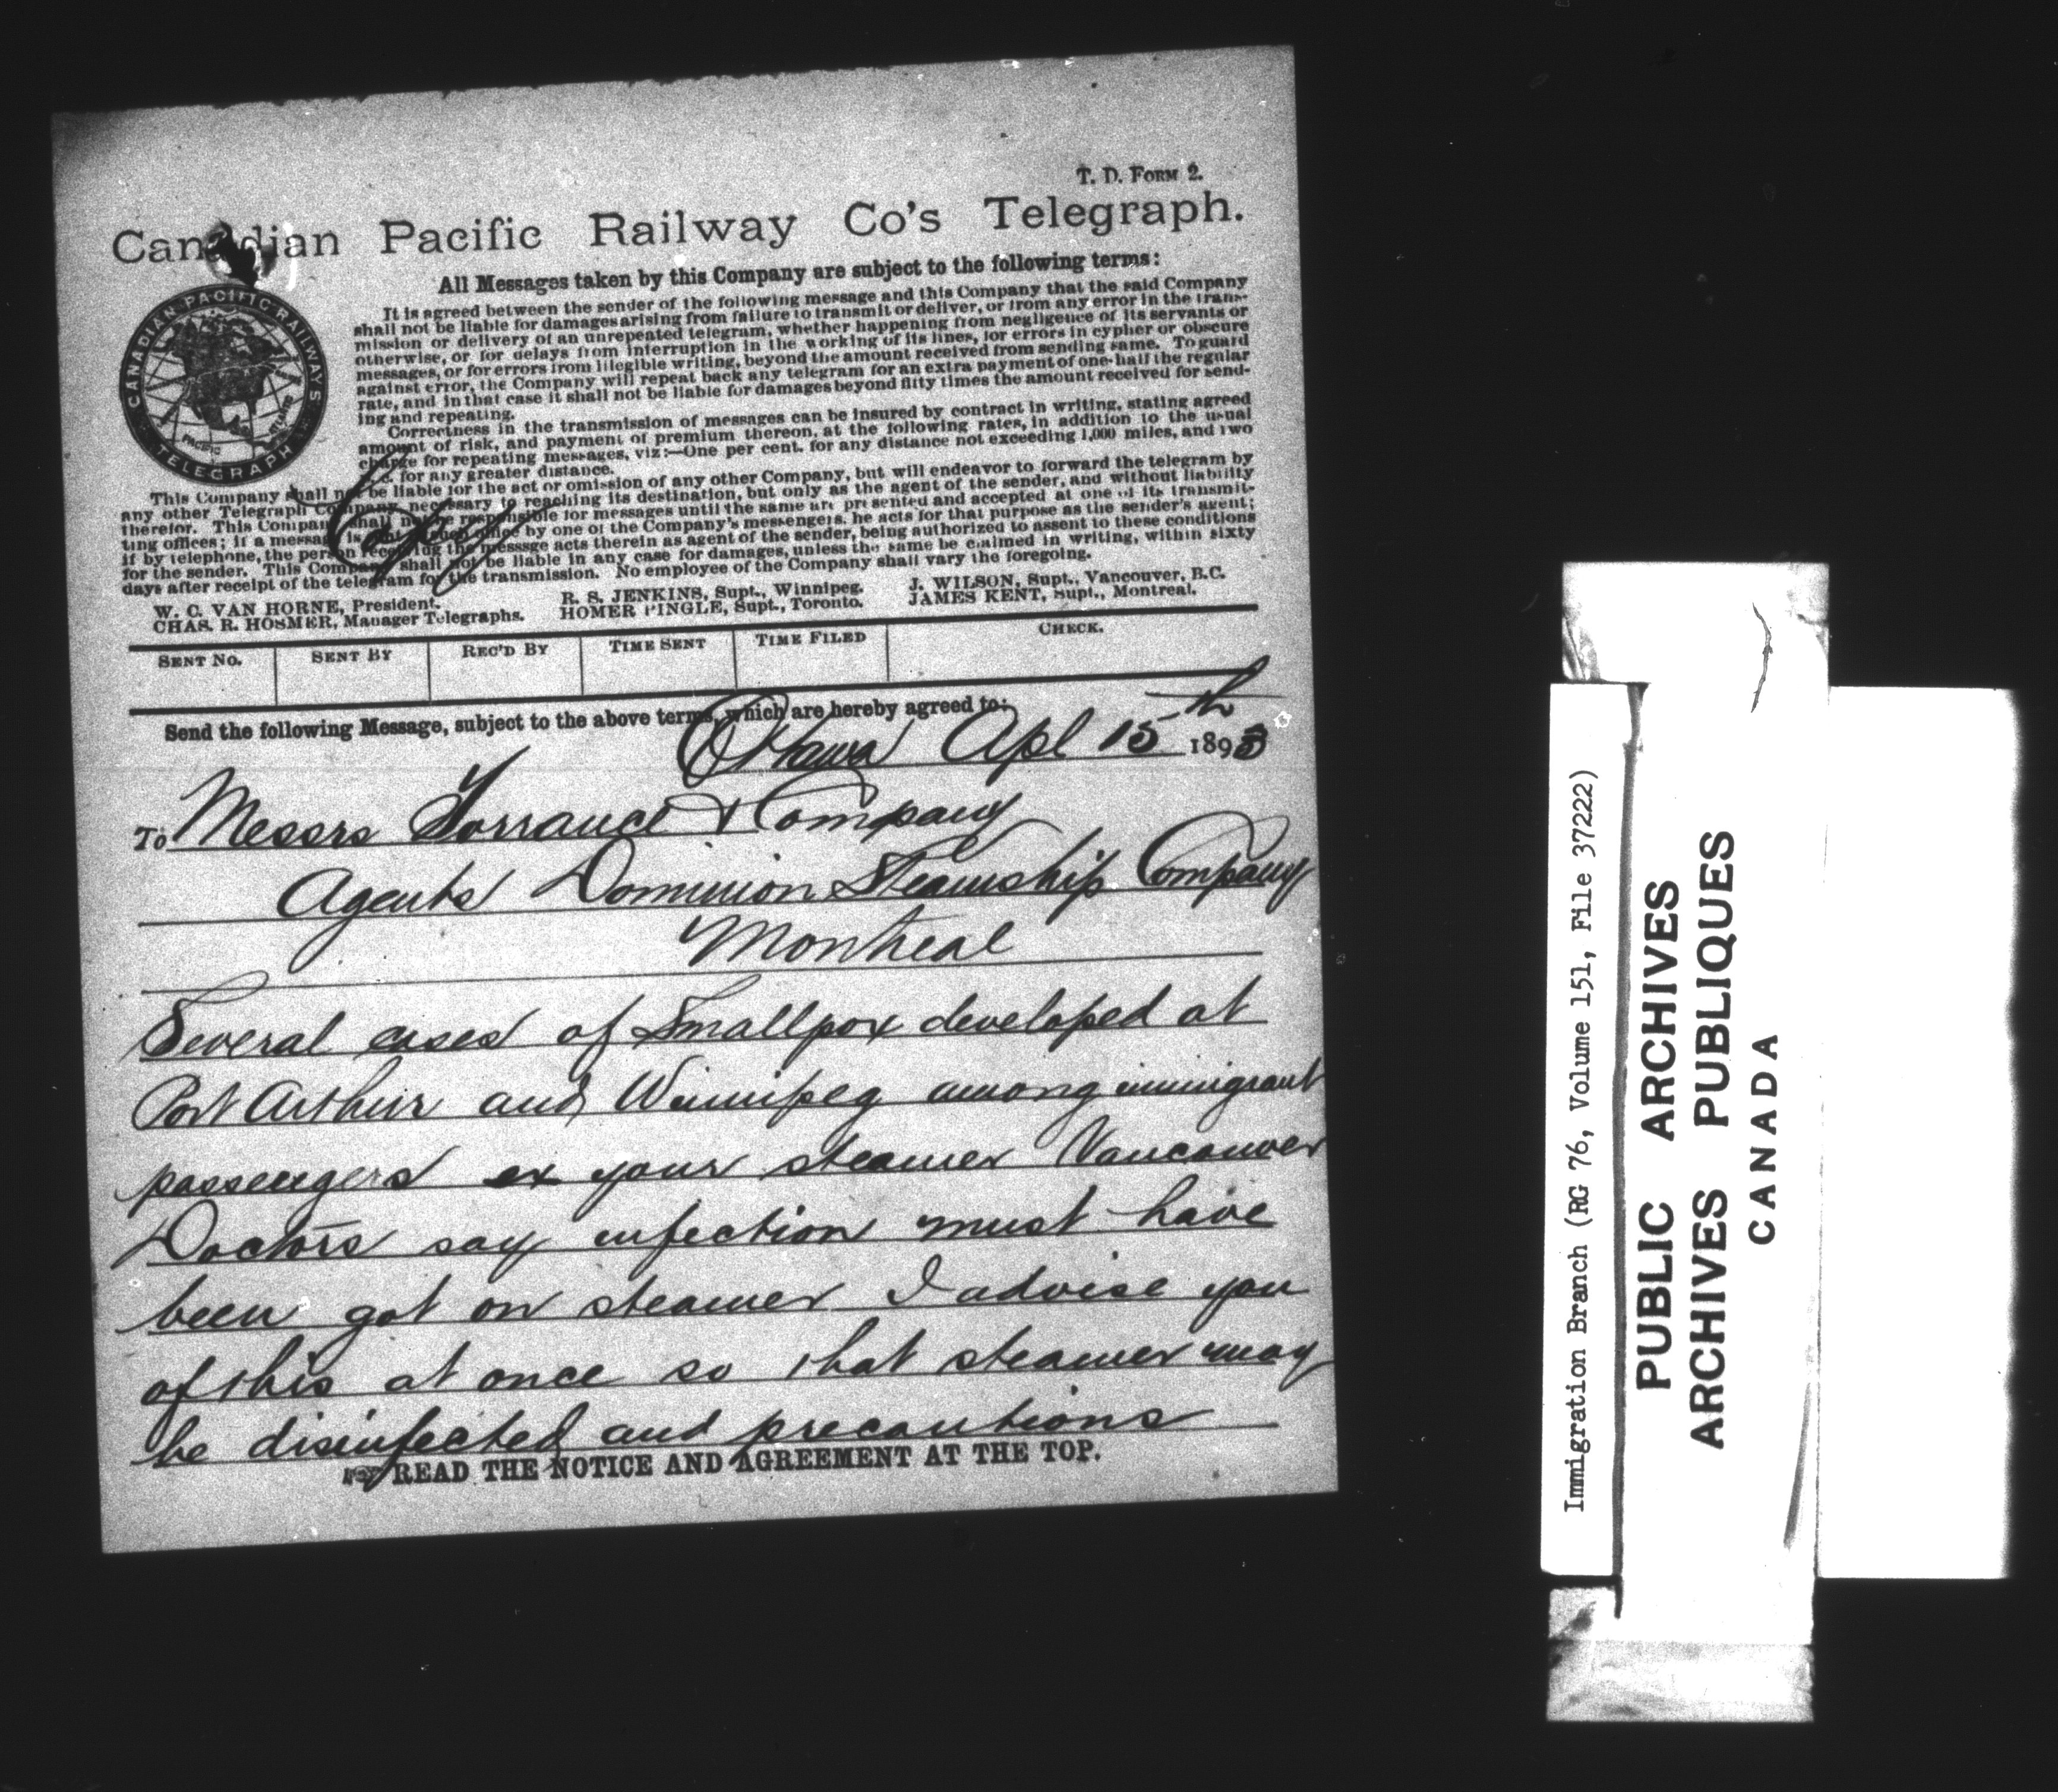 T. D. FORM 2.
Canadian Pacific Railway Co's Telegraph.
All Messages taken by this Company are subject to the following terms:
It is agreed between the sender of the following message and this Company that the said Company
shall not be liable for damages arising from failure to transmit or deliver, or from any error in the trans-
mission or delivery of an unrepeated telegram, whether happening from negligence of its servants or
otherwise, or for delays from interruption in the working of its lines, for errors in cypher or obscure
messages, or for errors from illegible writing, beyond the amount received from sending same. To guard
against error, the Company will repeat back any telegram for an extra payment of one-half the regular
rate, and in that case it shall not be liable for damages beyond fifty times the amount received for send-
ing and repeating.
Correctness in the transmission of messages can be insured by contract in writing, stating agreed
amount of risk, and payment of premium thereon, at the following rates, in addition to the usual
charge for repeating messages, viz:—One per cent. for any distance not exceeding 1,000 miles, and two
for any greater distance.
This Company shall not be liable for the act or omission of any other Company, but will endeavor to forward the telegram by
any other Telegraph Company necessary to reaching its destination, but only as the agent of the sender, and without liability
therefor. This Company shall not be responsible for messages until the same are presented and accepted at one of its transmit-
ting offices; if a message is sent to such office by one of the Company's messengers, he acts for that purpose as the sender's agent;
if by telephone, the person receiving the message acts therein as agent of the sender, being authorized to assent to these conditions
for the sender. This Company shall not be liable in any case for damages, unless the same be claimed in writing, within sixty
days after receipt of the telegram for the transmission. No employee of the Company shall vary the foregoing.
CANADIAN PACIFIC RAILWAY'S TELEGRAPH
PACIFIC
ATLANTIC
Copy
W. C. VAN HORNE, President. R. S. JENKINS, Supt., Winnipeg. J. WILSON, Supt., Vancouver, B.C.
CHAS. R. HOSMER, Manager Telegraphs. HOMER PINGLE, Supt., Toronto. JAMES KENT, Supt., Montreal.
SENT NO. SENT BY REC'D BY TIME SENT TIME FILED CHECK.
Send the following Message, subject to the above terms, which are hereby agreed to:
Ottawa Apl 15th 1893
To Messrs Torrance & Company
Agents Dominion Steamship Company
Montreal
Several cases of Smallpox developed at
Port Arthur and Winnipeg among immigrant
passengers ex your steamer Vancouver
Doctors say infection must have
been got on steamer I advise you
of this at once so that steamer may
be disinfected and precautions
READ THE NOTICE AND AGREEMENT AT THE TOP.
Immigration Branch (RG 76, Volume 151, File 37222)
PUBLIC ARCHIVES
ARCHIVES PUBLIQUES
CANADA